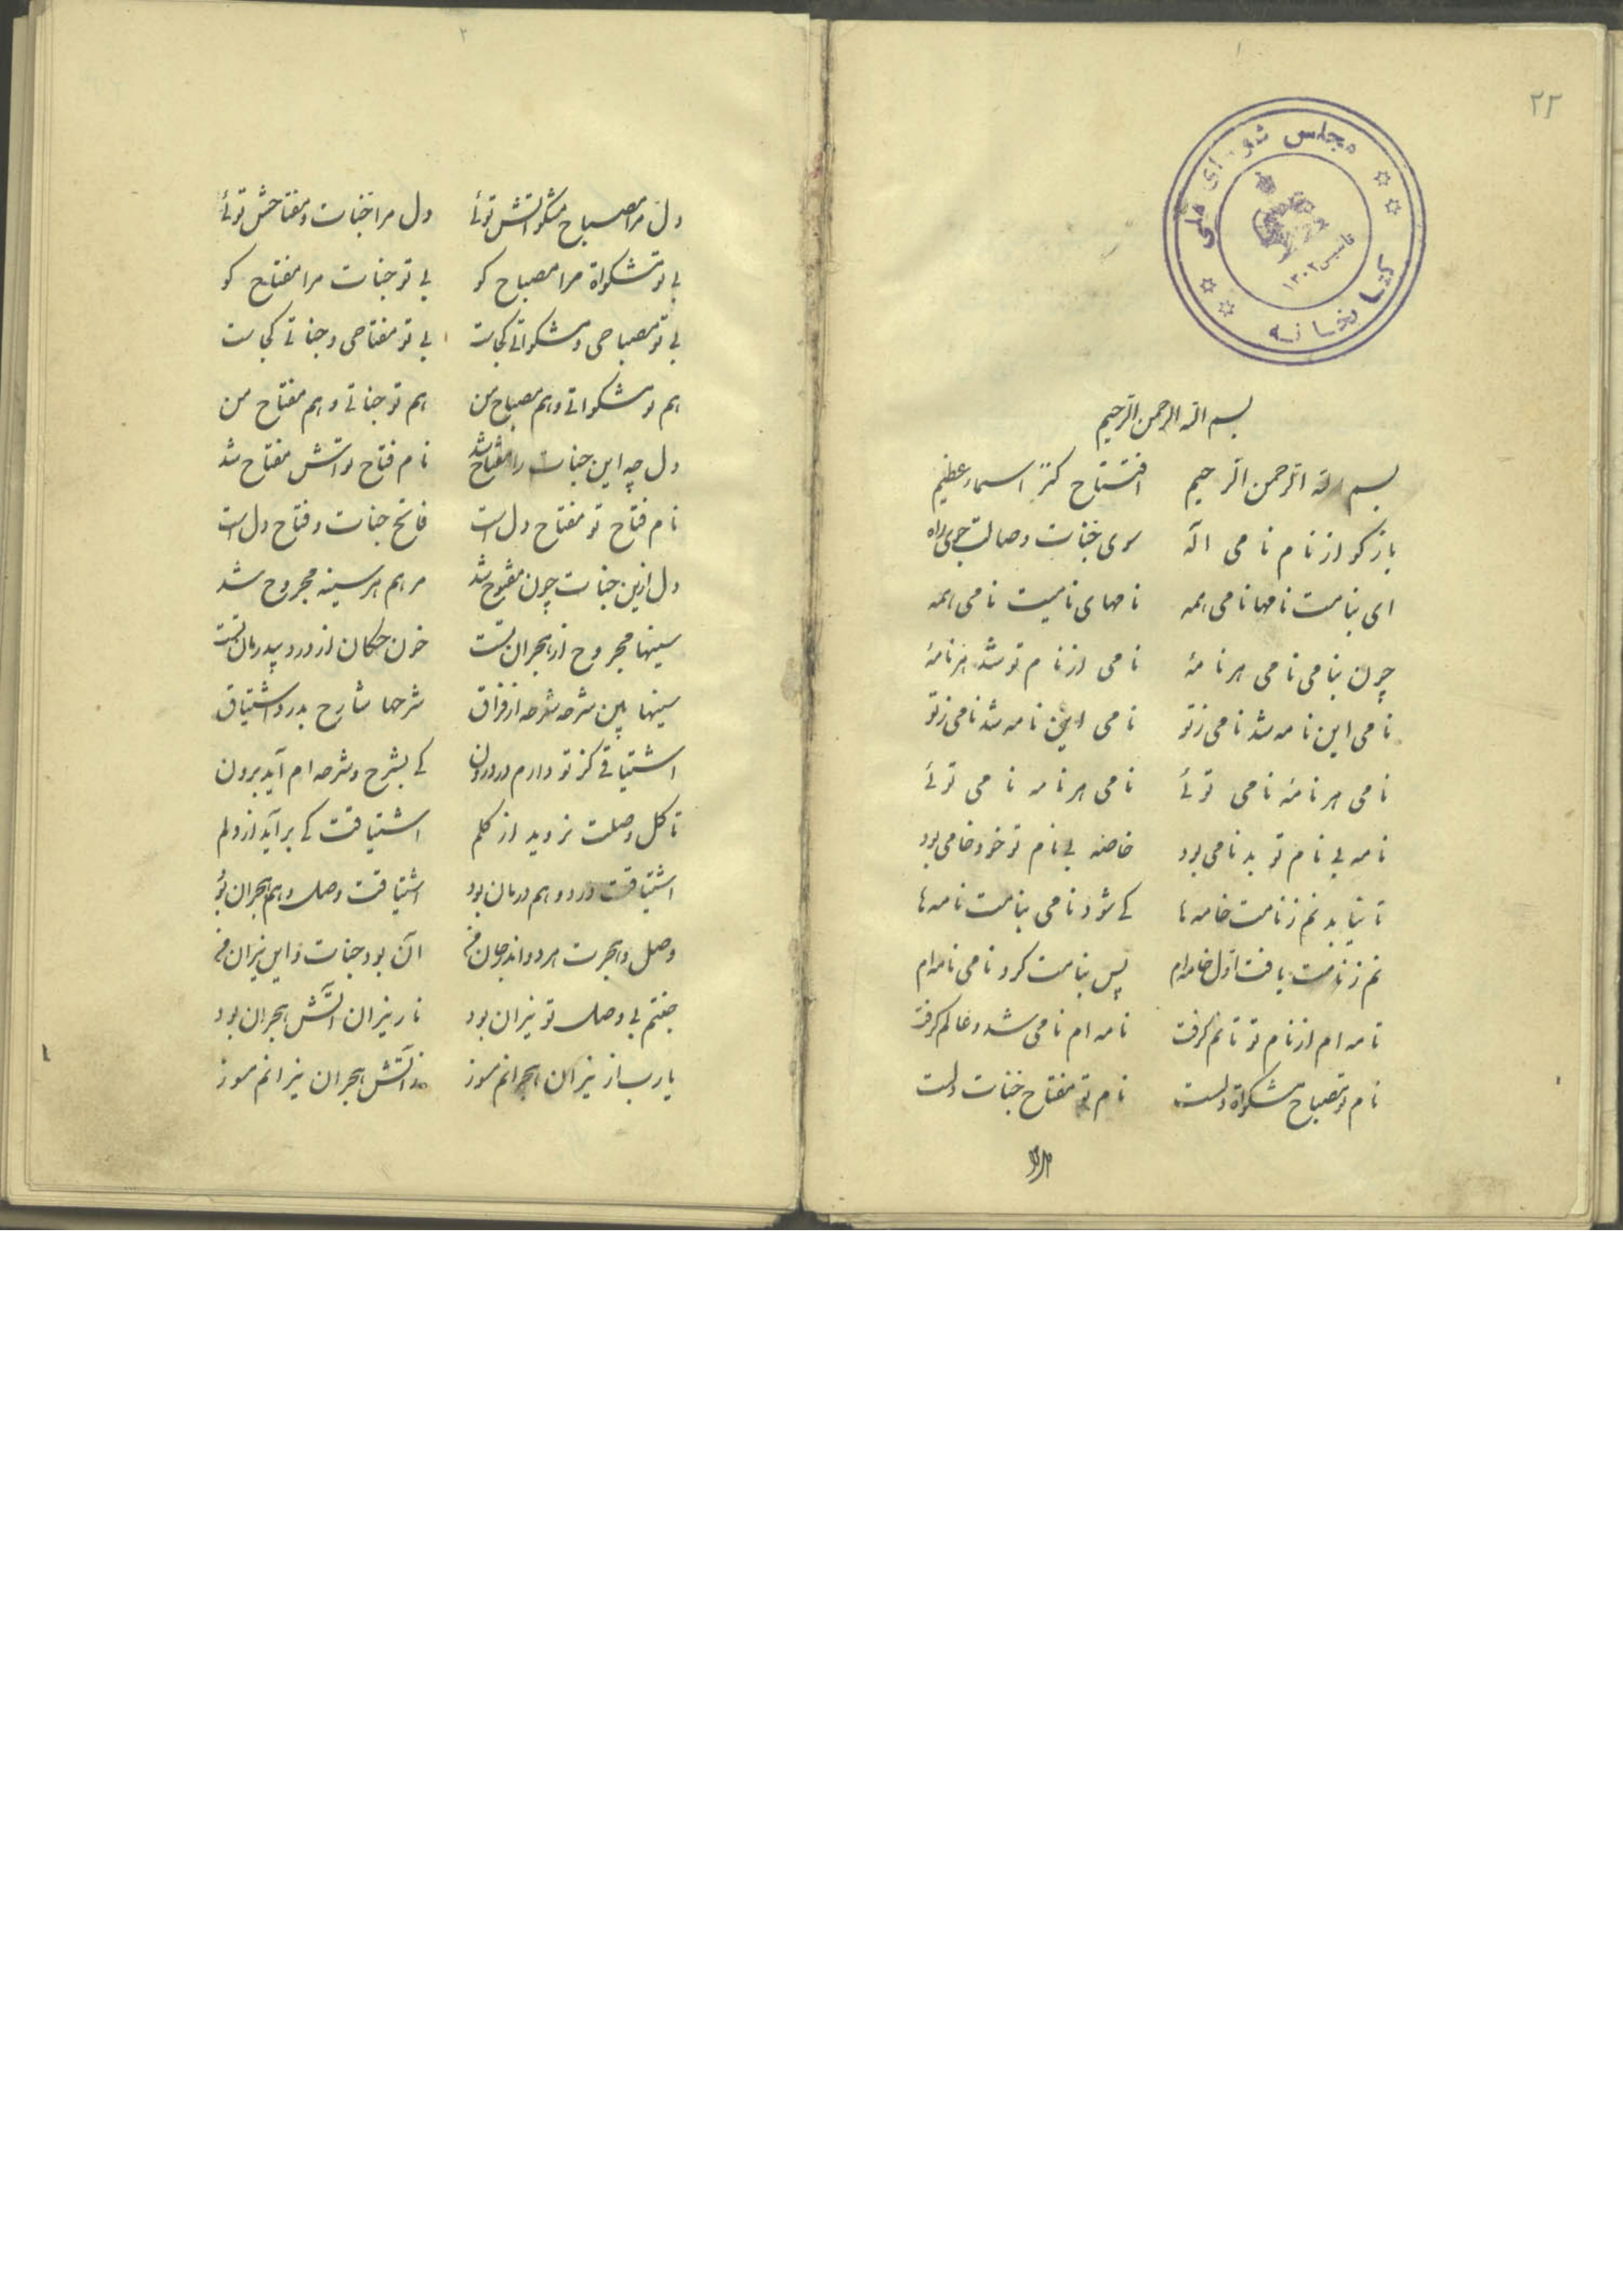 ۱
۲۳
مجلس شورای ملی
کتابخانه
تاسیس ۱۳۰۲
بسم الله الرحمن الرحیم
بسم الله الرحمن الرحیم افتتاح کنز اسماء عظیم
بازکو از نام نامی اله سوی جنات وصالت جوی راه
ای بنامت نامها نامی همه نامهای نامیت نامی همه
چون بنامی نامی هر نامهٔ نامی از نام تو شد هر نامهٔ
نامی این نامه شد نامی ز تو نامی این نامه شد نامی ز تو
نامی هر نامهٔ نامی توئی نامی هر نامه نامی توئی
نامه بی نام تو بد نامی بود خاصه بی نام تو خود خامی بود
تا نیابد نم ز نامت خامه ها کی شود نامی بنامت نامه ها
نم ز نامت یافت اول خامه ام پس بنامت کرد نامی نامه ام
نامه ام از نام تو تا نم کرفت نامه ام نامی شد و عالم کرفت
نام تو مصباح مشکوة دلست نام تو مفتاح جنات دلست
۲
دل مرا مصباح و مشکواتش توئی دل مرا جنات و مفتاحش توئی
بی تو مشکواة مرا مصباح کو بی تو جنات مرا مفتاح کو
بی تو مصباحی و مشکواتی کجاست بی تو مفتاحی و جناتی کجاست
هم تو مشکواتی و هم مصباح من هم تو جناتی و هم مفتاح من
دل چه این جنات را مفتاح شد نام فتاح تواتش مفتاح شد
نام فتاح تو مفتاح دل است فاتح جنات و فتاح دل است
دل ازین جنات چون مفتوح شد مرهم هر سینه مجروح شد
سینها مجروح از هجران تست خون چکان از درد بیدرمان تست
سینها بین شرحه شرحه از فراق شرحها شارح بدرد اشتیاق
اشتیاقی کز تو دارم در درون کی بشرح و شرحه ام آید برون
تا کل وصلت نروید از کلم اشتیاقت کی برآید از دلم
اشتیاقت درد و هم درمان بود اشتیاقت وصل و هم هجران بود
وصل و هجرت هر دو اندر جان من آن بود جنات و این نیران من
جنتم بی وصل تو نیران بود نار نیران آتش هجران بود
یارب از نیران هجرانم مسوز زآتش هجران نیرانم مسوز